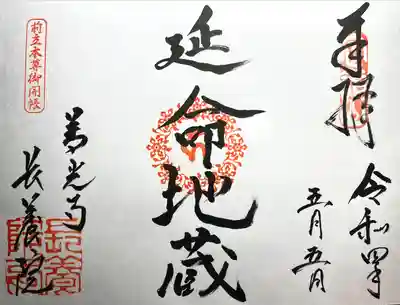 奉拝
令和四年
五月五日
延命地蔵
前立本尊御開帳
善光寺
長養院